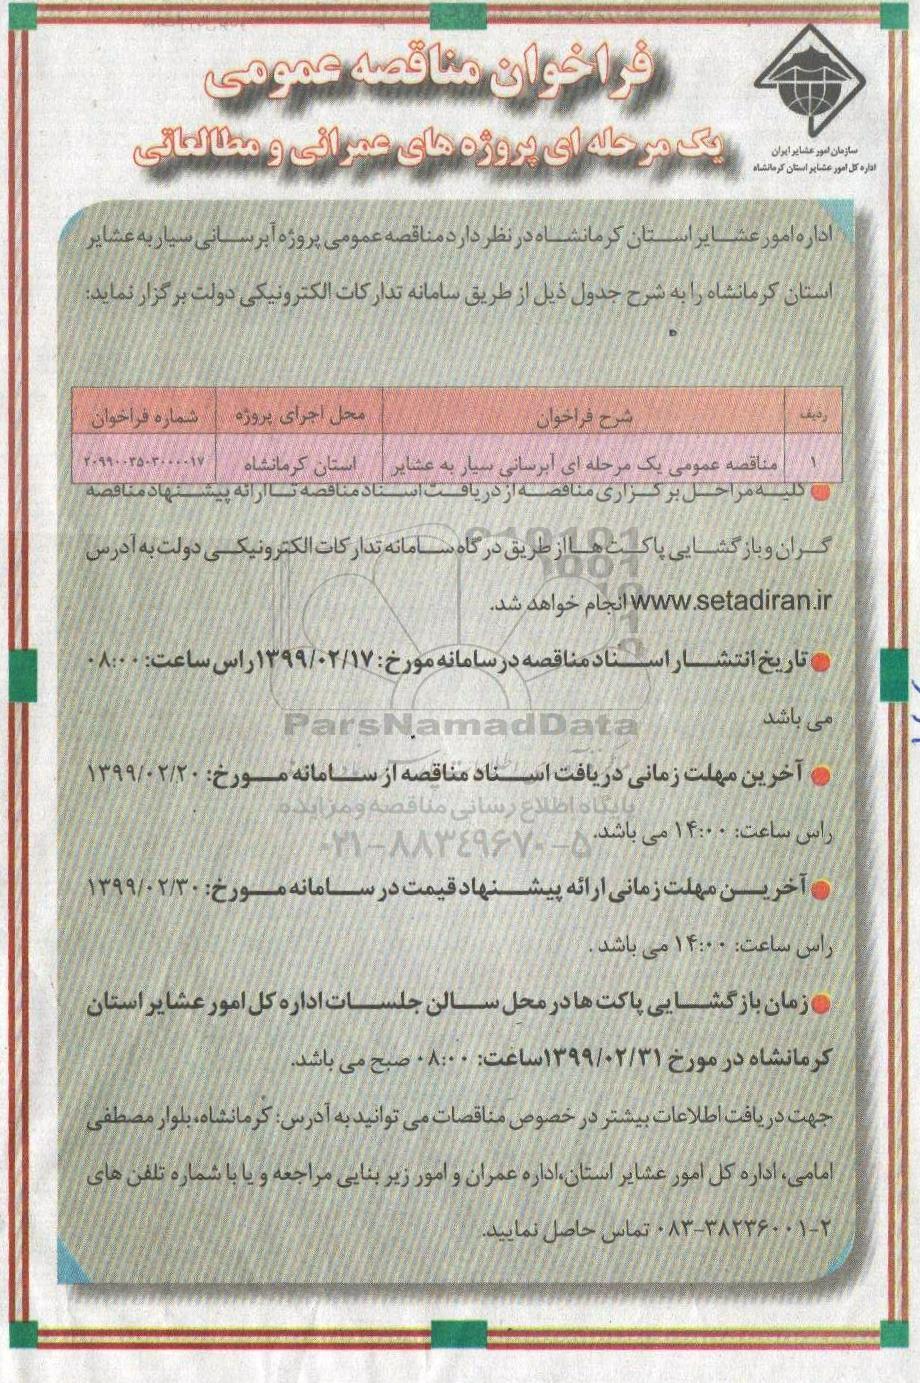 فراخوان مناقصه عمومی
یک مرحله ای پروژه های عمرانی و مطالعاتی
سازمان امور عشایر ایران
اداره کل امور عشایر استان کرمانشاه
اداره امور عشایر استان کرمانشاه در نظر دارد مناقصه عمومی پروژه آبرسانی سیار به عشایر
استان کرمانشاه را به شرح جدول ذیل از طریق سامانه تدارکات الکترونیکی دولت برگزار نماید:
ردیف شرح فراخوان محل اجرای پروژه شماره فراخوان
۱ مناقصه عمومی یک مرحله ای آبرسانی سیار به عشایر استان کرمانشاه ۲۰۹۹۰۰۳۵۰۳۰۰۰۰۱۷
کلیه مراحل برگزاری مناقصه از دریافت اسناد مناقصه تا ارائه پیشنهاد مناقصه
گران و بازگشایی پاکت ها از طریق درگاه سامانه تدارکات الکترونیکی دولت به آدرس
www.setadiran.ir انجام خواهد شد.
تاریخ انتشار اسناد مناقصه در سامانه مورخ: ۱۳۹۹/۰۲/۱۷ راس ساعت: ۰۸:۰۰
می باشد
ParsNamadData
آخرین مهلت زمانی دریافت اسناد مناقصه از سامانه مورخ: ۱۳۹۹/۰۲/۲۰
پایگاه اطلاع رسانی مناقصه و مزایده
راس ساعت: ۱۴:۰۰ می باشد.
۰۲۱-۸۸۳۴۹۶۷۰-۵
آخرین مهلت زمانی ارائه پیشنهاد قیمت در سامانه مورخ: ۱۳۹۹/۰۲/۳۰
راس ساعت: ۱۴:۰۰ می باشد .
زمان بازگشایی پاکت ها در محل سالن جلسات اداره کل امور عشایر استان
کرمانشاه در مورخ ۱۳۹۹/۰۲/۳۱ ساعت: ۰۸:۰۰ صبح می باشد.
جهت دریافت اطلاعات بیشتر در خصوص مناقصات می توانید به آدرس: کرمانشاه، بلوار مصطفی
امامی، اداره کل امور عشایر استان، اداره عمران و امور زیر بنایی مراجعه و یا با شماره تلفن های
۰۸۳-۳۸۲۳۶۰۰۱-۲ تماس حاصل نمایید.